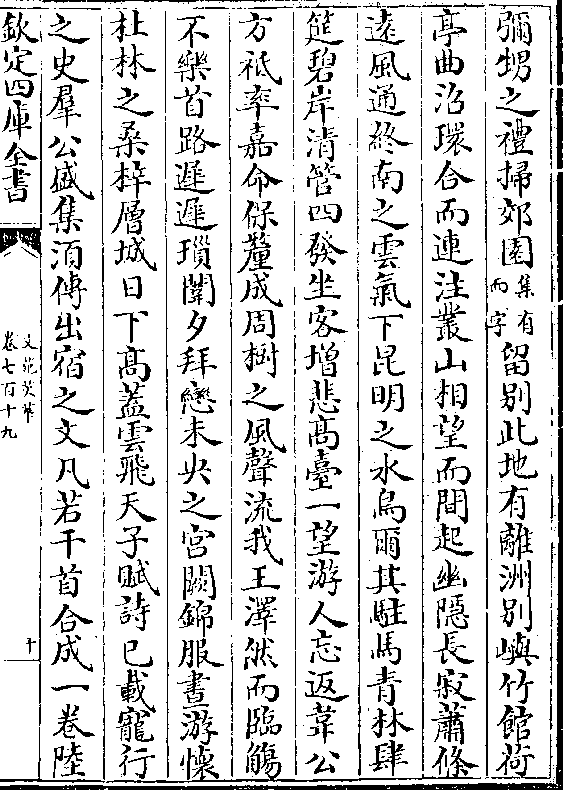 彌甥之禮掃郊園集有而字留别此地有離洲别嶼竹館荷
亭曲沼環合而連注叢山相望而間起幽隱長寂蕭條
遠風通終南之雲氣下昆明之水鳥爾其駐馬青林肆
筵碧岸清管四發坐客增悲髙臺一望游人忘返韋公
方祗率嘉命保釐成周樹之風聲流我王澤然而臨觴
不樂首路遲遲瑣闈夕拜戀未央之宫闕錦服晝游懷
杜林之桑梓層城日下髙葢雲飛天子賦詩已載寵行
之史羣公盛集湏傳出宿之文凡若干首合成一卷陸
欽定四庫全書
文苑英華
卷七百十九
十